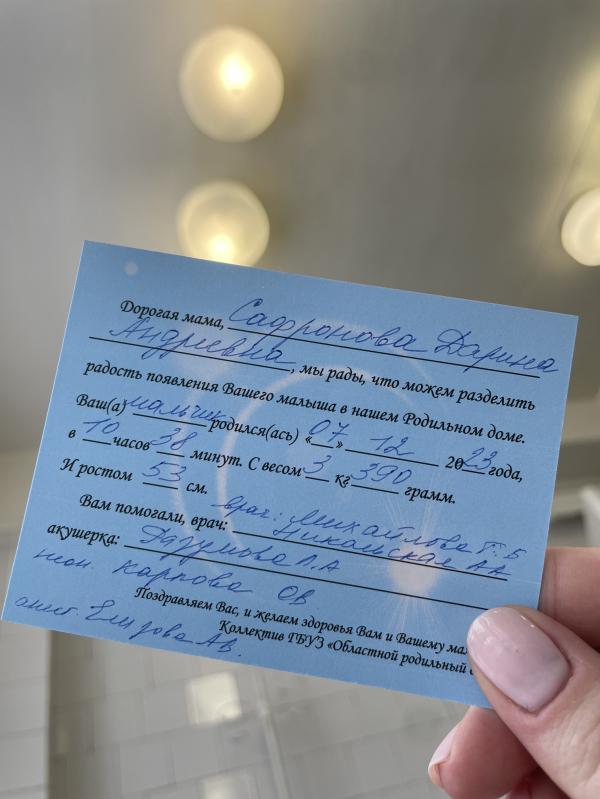 Дорогая мама, Сафронова Дарина
Андреевна, мы рады, что можем разделить
радость появления Вашего малыша в нашем Родильном доме.
Ваш(а) мальчик родился(ась) «07» 12 2023 года,
в 10 часов 38 минут. С весом 3 кг 390 грамм.
И ростом 53 см.
Вам помогали, врач: врач: Михайлова Т.Б
Никольская АА
акушерка: Л.А
неон. Карпова ОВ
анест. Елизова АВ.
Поздравляем Вас, и желаем здоровья Вам и Вашему
Коллектив ГБУЗ «Областной родильный